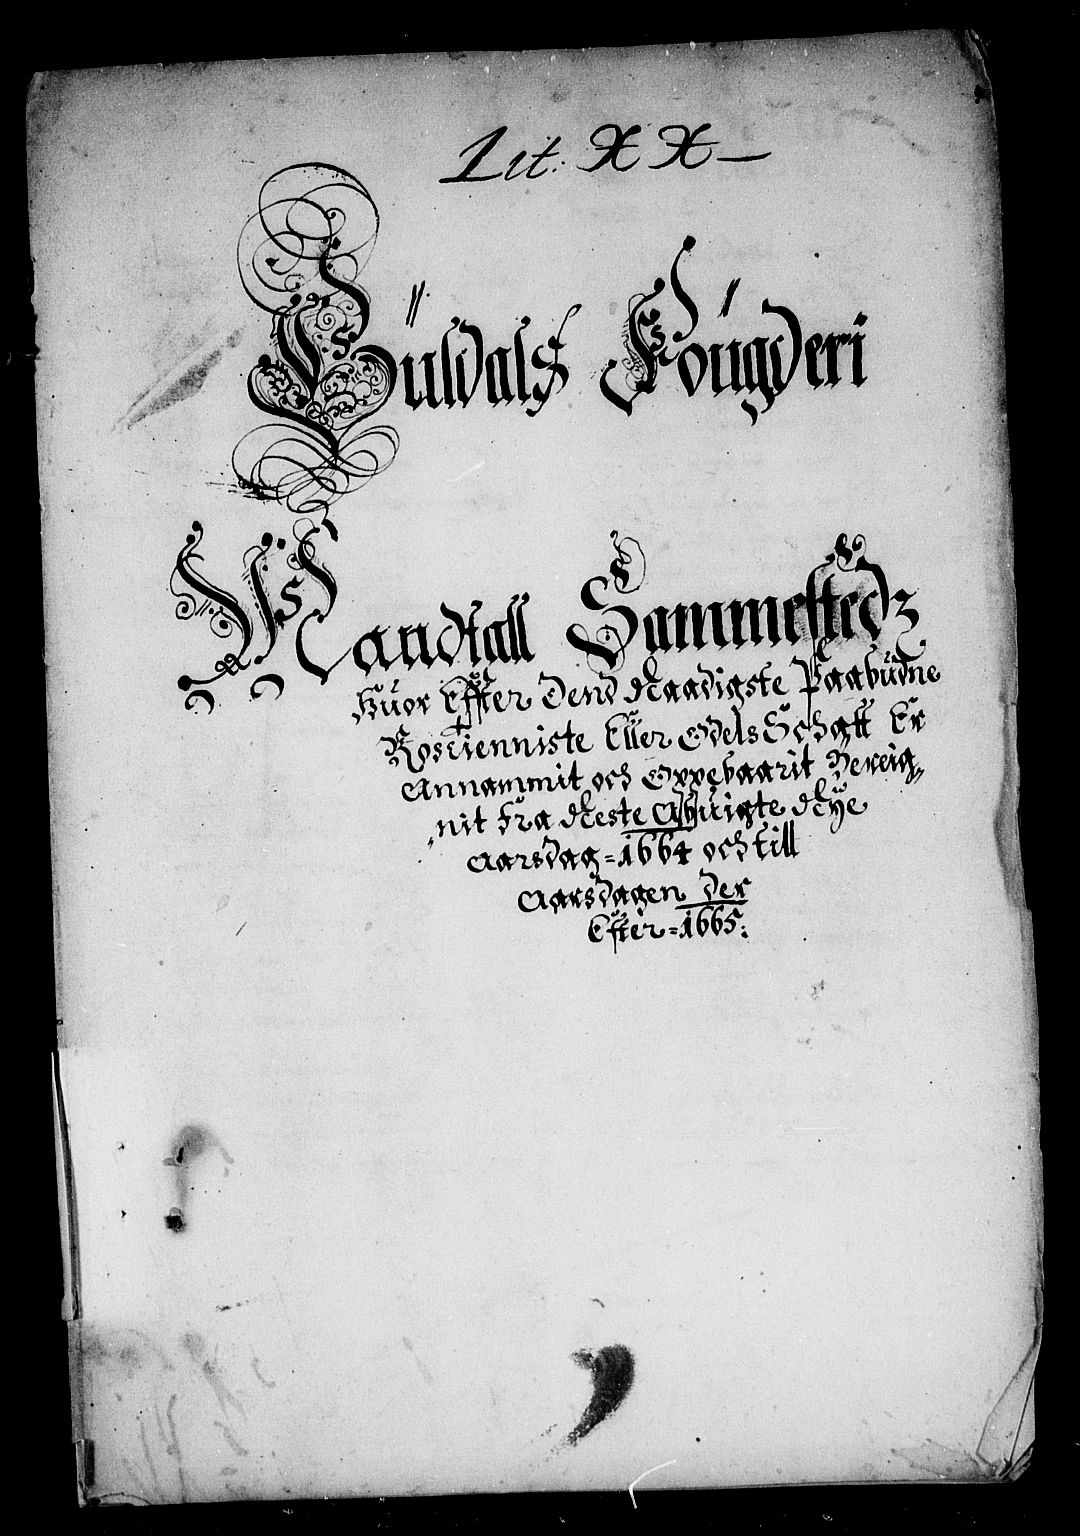 Lit: XX
Büsdals Fougderi
Mandtall Sammestedz
Huor Effter Dend Naadigste Paabudne
Rostienniste Eller Odels Schatt Er
Annammit och Oppebaarit Bereig„
„nit fra Neste Afvigte Nye
Aarsdag = 1664 och till
Aarsdagen der
Efter = 1665: